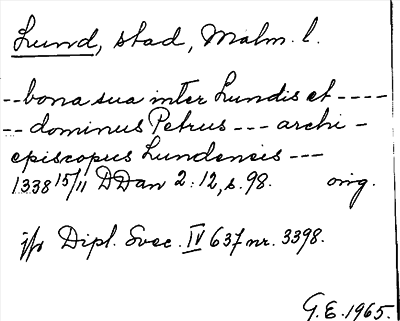 Lund, stad, Malm. l.
-- bona sua inter Lundis et ----
-- dominus Petrus --- archi-
episcopus Lundensis ---
1338 15/11 DDan 2:12, s. 98. orig.
jfr Dipl. Svec. IV 637 nr. 3398.
G.E. 1965.